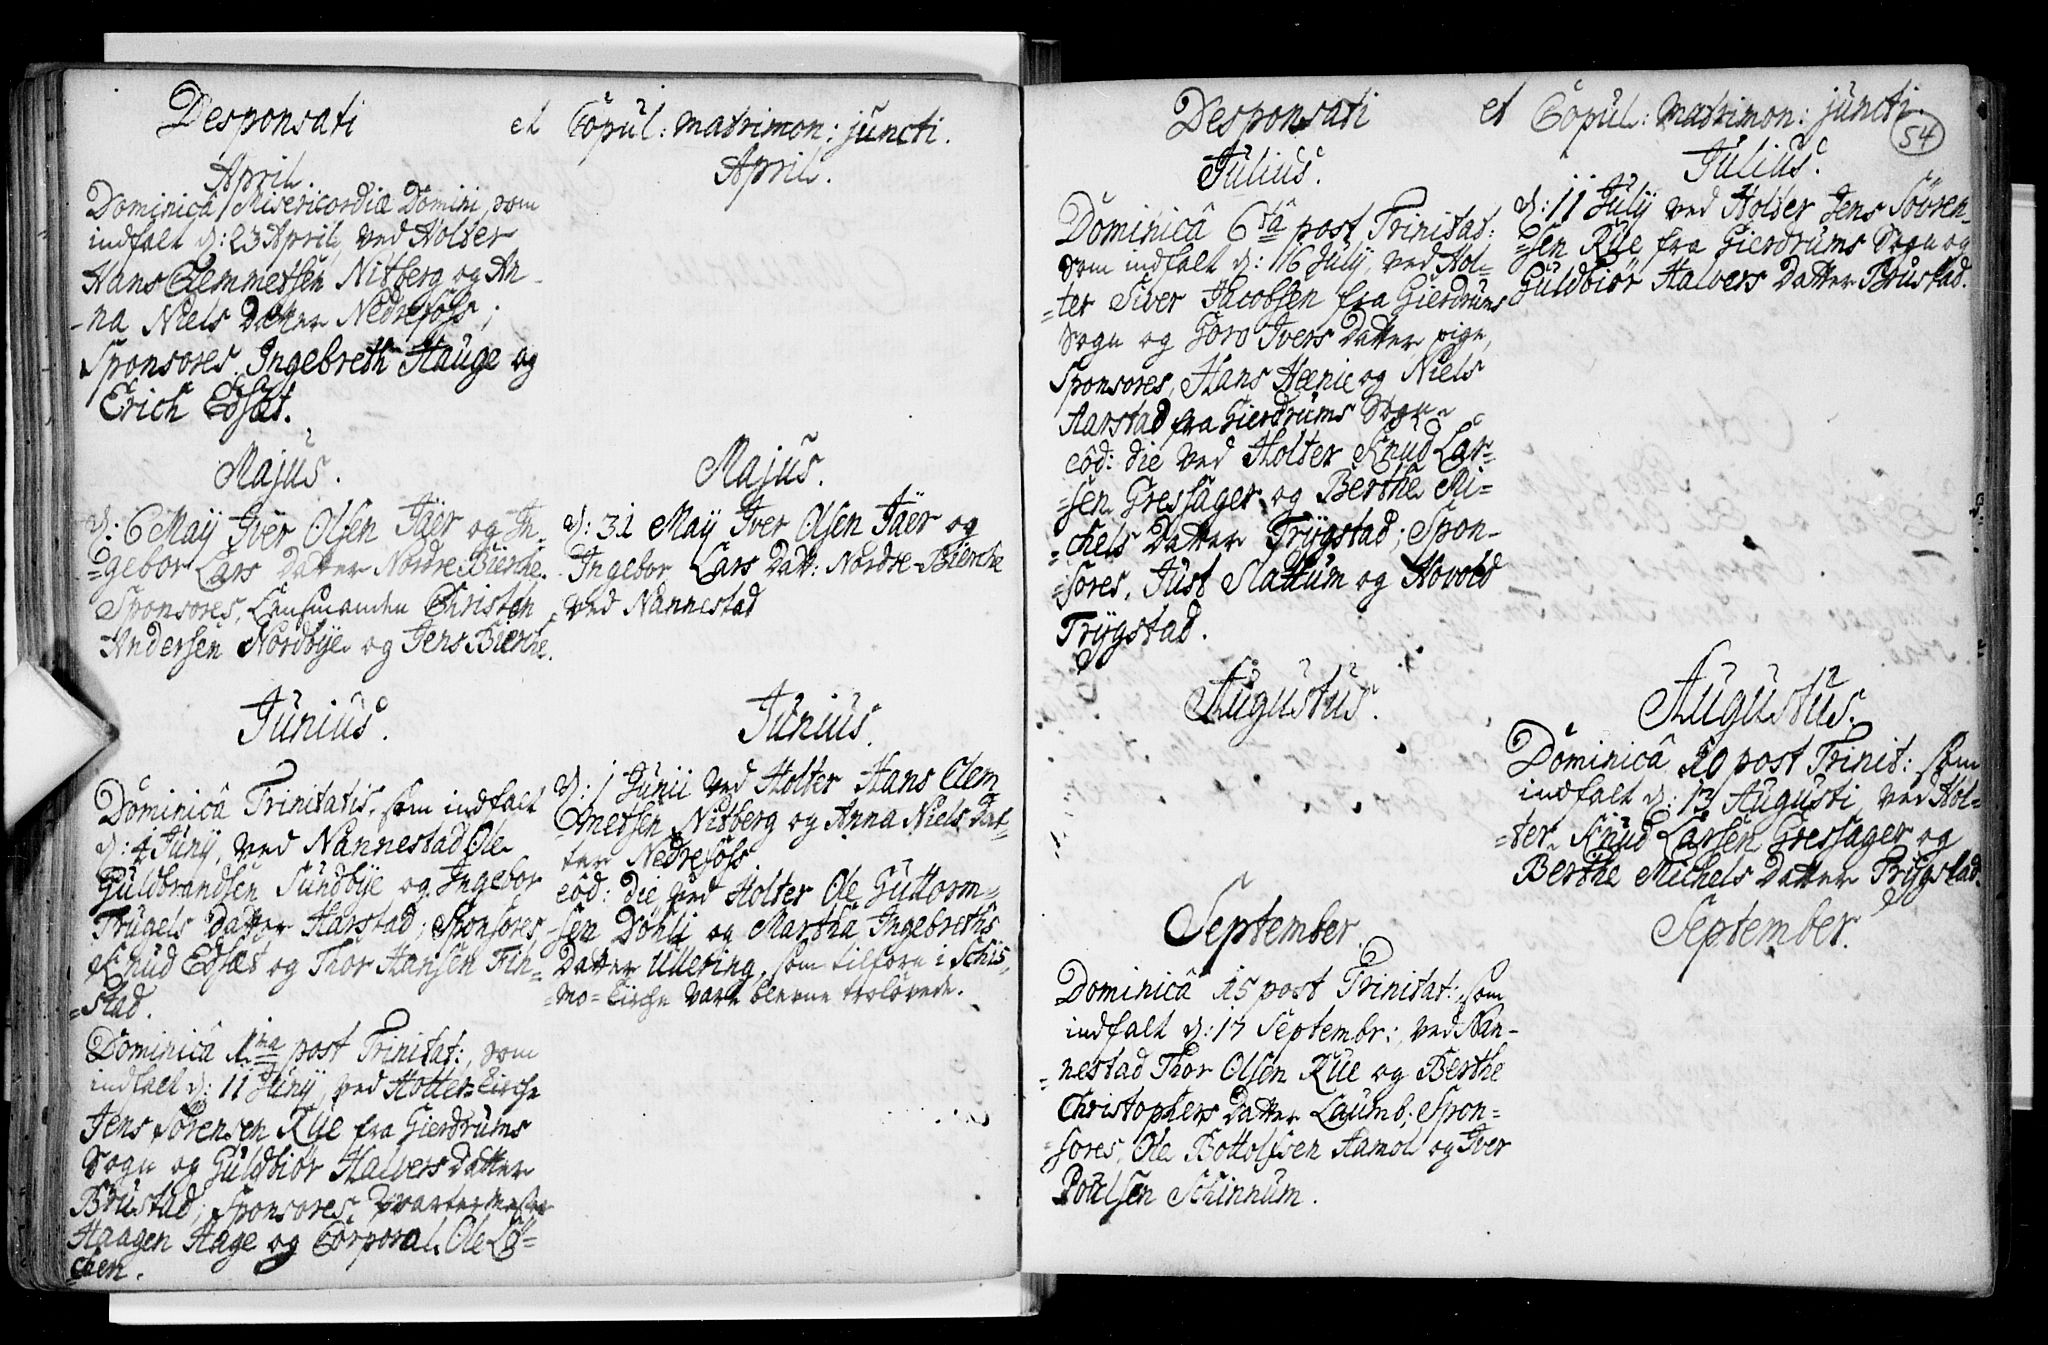 Desponsati et Copul: matrimon: juncti.
April.
Dominicâ Misericordiæ Domini, som
indfalt d: 23 April, ved Holter
Hans Clemmetsen Nitberg og An-
-na Niels Datter Nedresøss;
Sponsores. Ingebreth Hauge og
Erich Edsæt.
Majus.
d: 6 Maÿ Iver Olsen Jäer og In-
=gebor Lars Datter Nordre Bierche.
Sponsores, Lensmanden Christen
Andersen Nordbÿe og Jens Bierche.
Junius.
Dominicâ Trinitatis, som indfalt
d: 4 Junÿ, ved Nannestad Ole
Guldbrandsen Sundbÿe og Ingebor
Trugels Datter Harstad; Sponsores,
Knud Edsæt og Thor Hansen Fin-
=stad.
Dominicâ 1ma post Trinitat:, som
indfalt d: 11 Junÿ, ved Holter-Kirche
Jens Sørensen Rÿe fra Gierdrums
Sogn og Guldbiør Halvers Datter
Brustad; Sponsores Qvartermester
Haagen Hage og Corporal Ole Lÿ-
=chen.
April.
Majus.
d: 31 Maÿ Iver Olsen Jäer og
Ingebor Lars Datt: Nordre-Bierche
ved Nannestad
Junius.
d: 1 Junii ved Holter Hans Clem
=metsen Nitberg og Anna Niels Dat-
ter Nedresøss
eôd: die ved Holter Ole Guttorm-
=sen Döhli og Martha Ingebreths
Datter Ullering, som tilforn i Schis-
=mo-Kirche vare blevne trolovede.
54
Desponsati et Copul: matrimon: juncti.
Julius.
Dominicâ 6ta post Trinitat:
som indfalt d: 16 Julÿ, ved Hol-
=ter Siver Jacobsen fra Gierdrums
Sogn og Goro Ivers Datter pige,
Sponsores, Hans Hænie og Niels
Aarstad fra Gierdrums Sogn
eôd: die ved Holter Knud Lar-
=sen Gressager og Berthe Mi=
=chels Datter Trÿgstad; Spon-
=sores, Just Slattum og Hovold
Trÿgstad.
Augustus.
September.
Dominicâ 15 post Trinitat:, som
indfalt d: 17 Septembr:, ved Nan-
=nestad Thor Olsen Rüe og Berthe
Christophers Datter Laumb; Spon=
=sores, Ole Bottolfsen Hamol og Iver
Poulsen Schinnum.
Julius.
d: 11 Julÿ ved Holter Jens Sören-
=sen Rÿe, fra Gierdrums Sogn og
Guldbiör Halvers Datter Brustad.
Augustus.
Dominicâ 10 post Trinit: som
indfalt d: 13 Augusti, ved Hol-
=ter Knud Larsen Gressager og
Berthe Michels Datter Trÿgstad.
September.